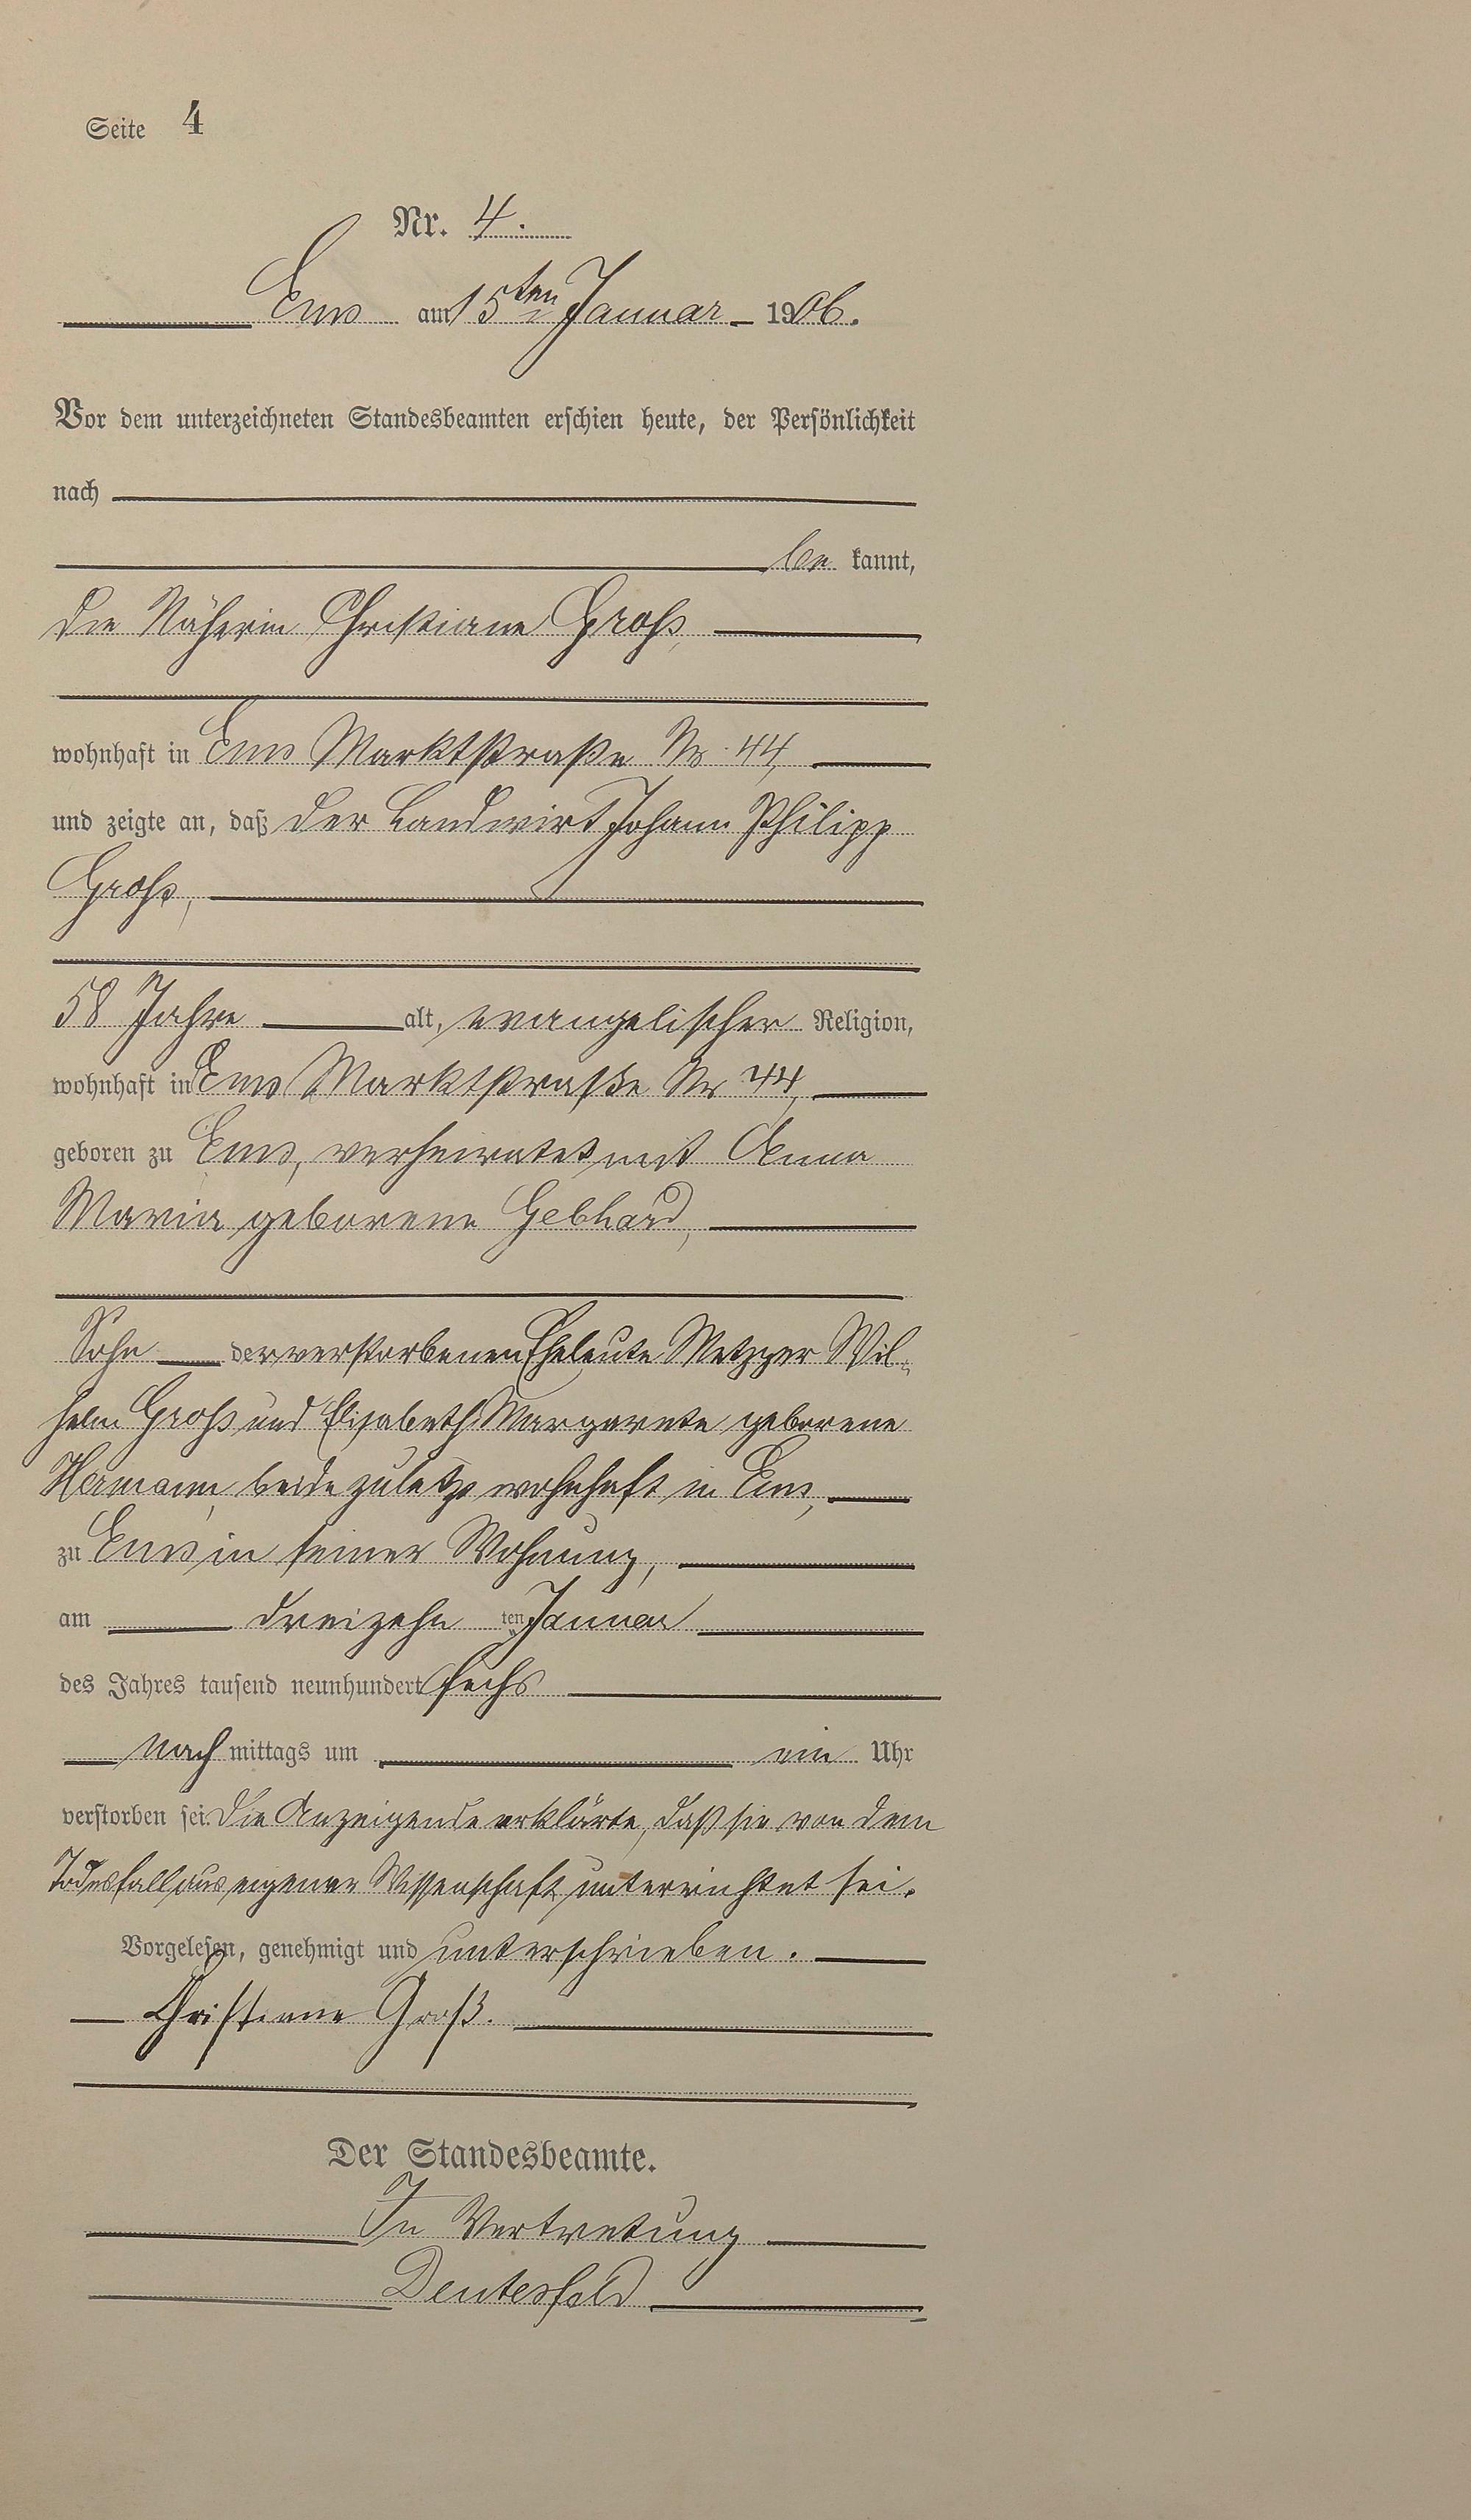 Seite 4
Nr. 4.
Ems am 15ten Januar 1906.
Vor dem unterzeichneten Standesbeamten erschien heute, der Persönlichkeit
nach
be kannt,
die Näherin Christiane Groß,
wohnhaft in Ems Marktstraße Nr 44,
und zeigte an, daß der Landwirt Johann Philipp
Groß,
58 Jahre alt, evangelischer Religion,
wohnhaft in Ems Marktstraße Nr 44,
geboren zu Ems, verheiratet mit Anna
Maria geborene Gebhard,
Sohn der verstorbenen Eheleute Metzger Wil-
helm Groß und Elisabeth Margarete geborene
Hermann, beide zuletzt wohnhaft in Ems,
zu Ems in seiner Wohnung,
am dreizehn ten Januar
des Jahres tausend neunhundert sechs
nach mittags um ein Uhr
verstorben sei. Die Anzeigende erklärte, daß sie von dem
Todesfall aus eigener Wissenschaft unterrichtet sei.
Vorgelesen, genehmigt und unterschrieben.
Christiane Groß.
Der Standesbeamte.
In Vertretung